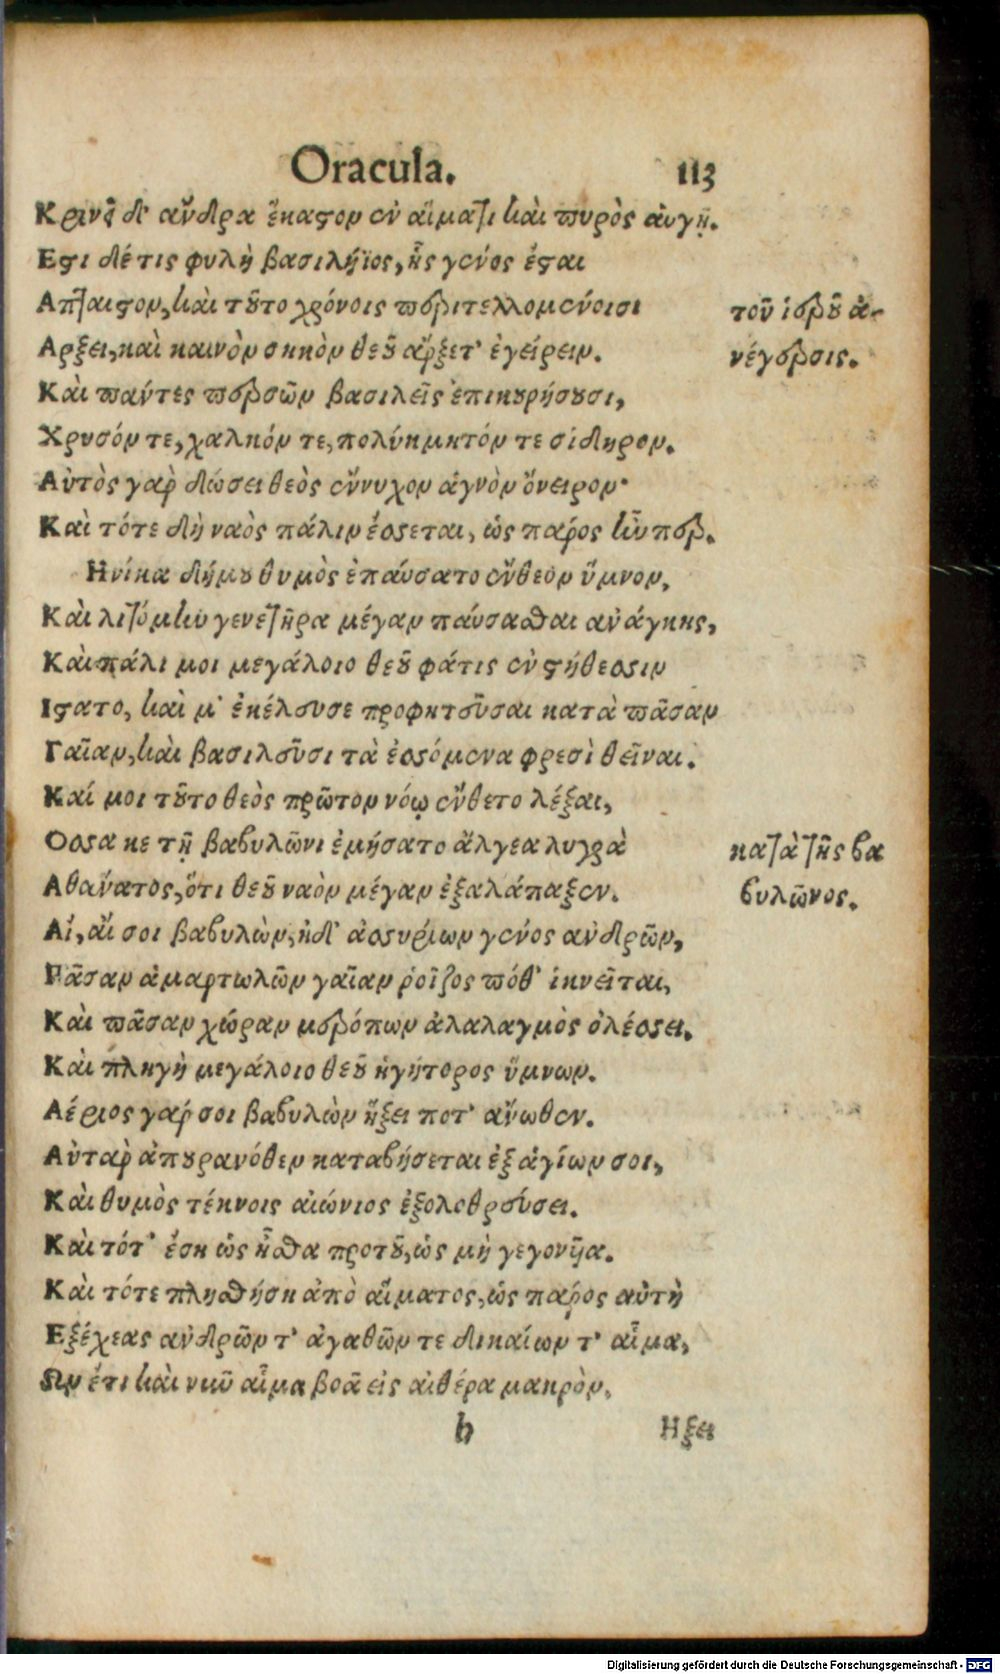 Oracula. 113
Κρινεῖ δ' ἄνδρα ἕκαστον ἐν αἵματι καὶ πυρὸς αὐγῇ.
Εστι δέ τις φυλὴ βασιλήϊος, ἧς γένος ἔσται
Απταιστον, καὶ τοῦτο χρόνοις περιτελλομένοισι
Αρξει, καὶ καινὸν σηκὸν θεοῦ ἄρξετ' ἐγείρειν.
τοῦ ἱεροῦ ἀ-
νέγερσις.
Καὶ πάντες περσῶν βασιλεῖς ἐπικουρήσουσι,
Χρυσόν τε, χαλκόν τε, πολύκμητόν τε σίδηρον.
Αὐτὸς γὰρ δώσει θεὸς ἔννυχον ἁγνὸν ὄνειρον·
Καὶ τότε δὴ ναὸς πάλιν ἔσσεται, ὡς πάρος ἦν περ.
Ηνίκα δή μου θυμὸς ἐπαύσατο ἔνθεον ὕμνον,
Καὶ λιτόμην γενετῆρα μέγαν παύσασθαι ἀνάγκης,
Καὶ πάλι μοι μεγάλοιο θεοῦ φάτις ἐν στήθεσσιν
Ιστατο, καὶ μ' ἐκέλευσε προφητεῦσαι κατὰ πᾶσαν
Γαῖαν, καὶ βασιλεῦσι τὰ ἐσσόμενα φρεσὶ θεῖναι.
Καί μοι τοῦτο θεὸς πρῶτον νόῳ ἔνθετο λέξαι,
Οσσα κε τῇ βαβυλῶνι ἐμήσατο ἄλγεα λυγρὰ
Αθάνατος, ὅτι θεοῦ ναὸν μέγαν ἐξαλάπαξεν.
κατὰ τῆς βα
βυλῶνος.
Αἲ, αἴ σοι βαβυλὼν, ἠδ' ἀσσυρίων γένος ἀνδρῶν,
Πᾶσαν ἁμαρτωλῶν γαῖαν ῥοῖζος πόθ' ἱκνεῖται,
Καὶ πᾶσαν χώραν μερόπων ἀλαλαγμὸς ὀλέσσει.
Καὶ πληγὴ μεγάλοιο θεοῦ ἡγήτορος ὕμνων.
Αέριος γάρ σοι βαβυλὼν ἥξει ποτ' ἄνωθεν.
Αὐτὰρ ἀπουρανόθεν καταβήσεται ἐξ ἁγίων σοι,
Καὶ θυμὸς τέκνοις αἰώνιος ἐξολοθρεύσει.
Καὶ τότ' ἔσῃ ὡς ἦσθα προτοῦ, ὡς μὴ γεγονῦια.
Καὶ τότε πλησθήσῃ ἀπὸ αἵματος, ὡς πάρος αὐτὴ
Εξέχεας ἀνδρῶν τ' ἀγαθῶν τε δικαίων τ' αἷμα,
Ων ἔτι καὶ νυῦ αἷμα βοᾷ εἰς αἰθέρα μακρὸν.
h Ηξει
Digitalisierung gefördert durch die Deutsche Forschungsgemeinschaft - DFG